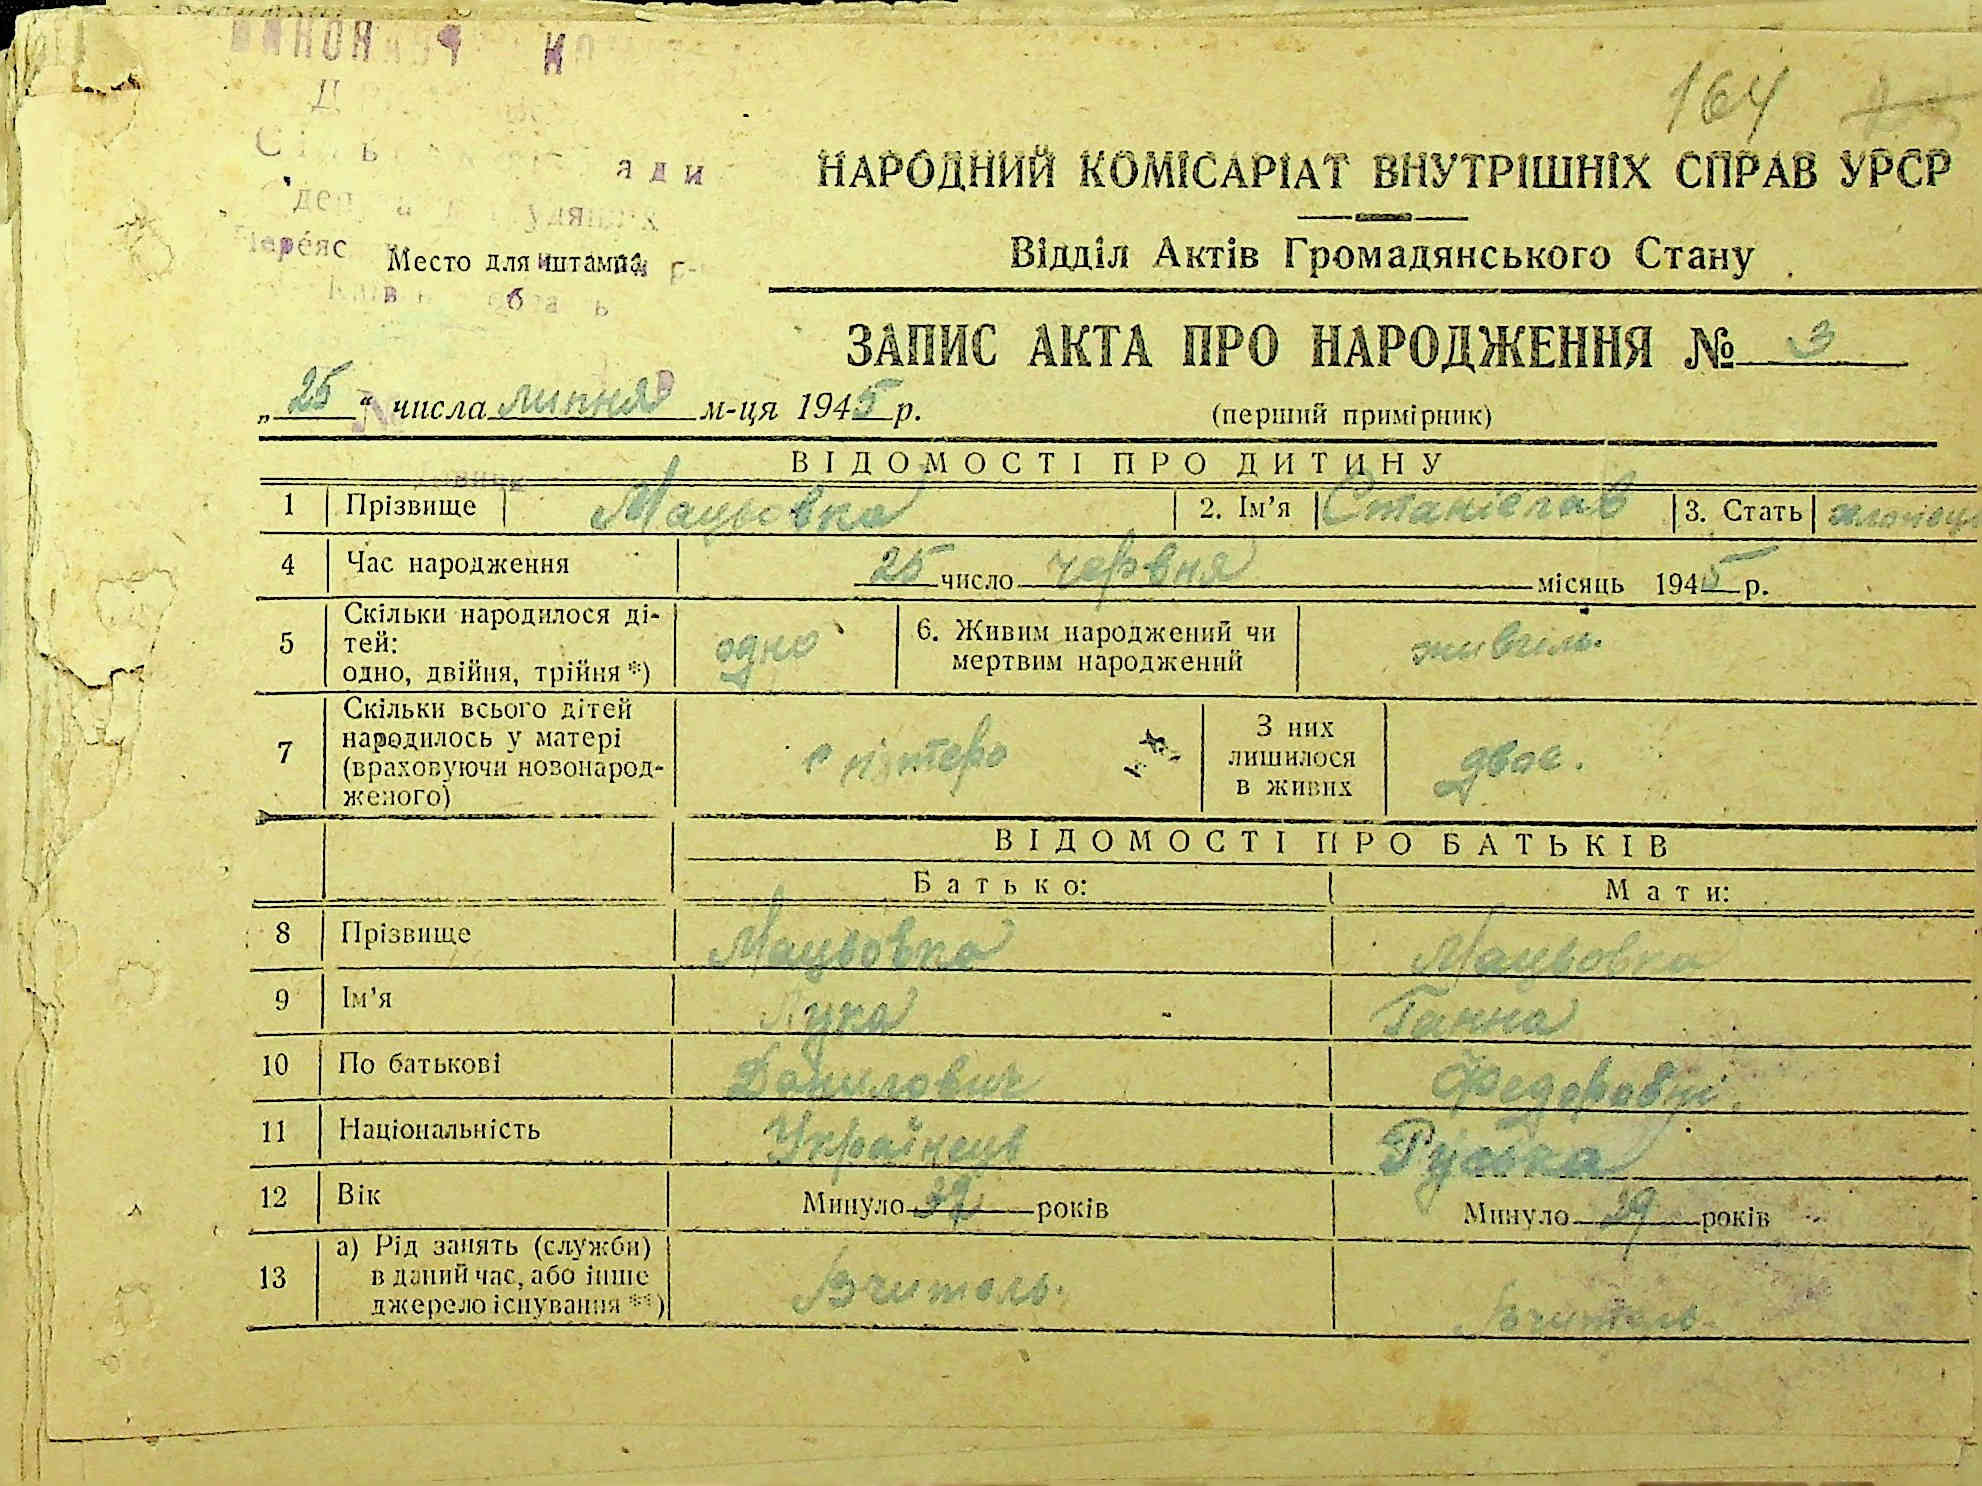 164
НАРОДНИЙ КОМІСАРІАТ ВНУТРІШНІХ СПРАВ УРСР
Відділ Актів Громадянського Стану
Место для штампа
ЗАПИС АКТА ПРО НАРОДЖЕННЯ № 3
„25“ числа липня м-ця 1945 р.
(перший примірник)
ВІДОМОСТІ ПРО ДИТИНУ
1 Прізвище Мацьовка 2. Ім’я Станіслав 3. Стать хлопець
4 Час народження 25 число червня місяць 1945 р.
5 Скільки народилося ді-
тей:
одно, двійня, трійня *) одно
6. Живим народжений чи
мертвим народжений живим.
7 Скільки всього дітей
народилось у матері
(враховуючи новонарод-
женого) пятеро
З них
лишилося
в живих двоє.
ВІДОМОСТІ ПРО БАТЬКІВ
Батько: Мати:
8 Прізвище Мацьовка Мацьовка
9 Ім’я Лука Ганна
10 По батькові Данилович Федорівна
11 Національність Українець Руська
12 Вік Минуло років Минуло 39 років
13 а) Рід занять (служби)
в даний час, або інше
джерело існування **) Вчитель. Вчитель.